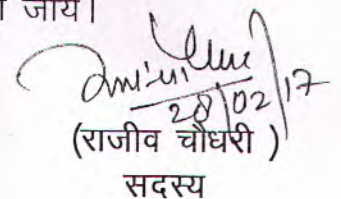 जाय।
28/02/17
(राजीव चौधरी )
सदस्य